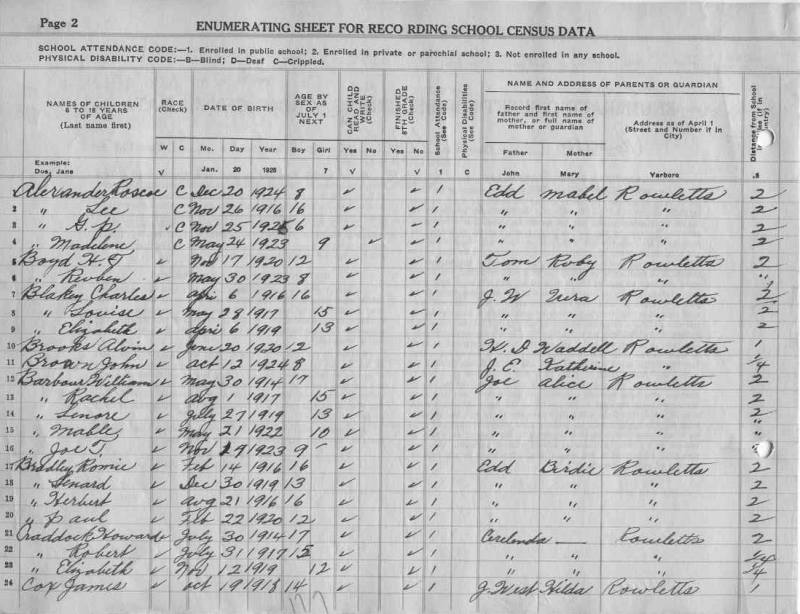 Page 2
ENUMERATING SHEET FOR RECO RDING SCHOOL CENSUS DATA
SCHOOL ATTENDANCE CODE:—1. Enrolled in public school; 2. Enrolled in private or parochial school; 3. Not enrolled in any school.
PHYSICAL DISABILITY CODE:—B—Blind; D—Deaf C—Crippled.
NAMES OF CHILDREN 6 TO 18 YEARS OF AGE (Last name first)
RACE (Check)
W C
DATE OF BIRTH
Mo. Day Year
AGE BY SEX AS OF JULY 1 NEXT
Boy Girl
CAN CHILD READ AND WRITE (Check)
Yes No
FINISHED 8TH GRADE (Check)
Yes No
School Attendance (See Code)
Physical Disabilities (See Code)
NAME AND ADDRESS OF PARENTS OR GUARDIAN
Record first name of father and first name of mother, or full name of mother or guardian
Father Mother
Address as of April 1 (Street and Number if in City)
Distance from School
Example: Doe, Jane √ Jan. 20 1926 7 √ √ 1 C John Mary Yarboro .5
Alexander Roscoe C Dec 20 1924 8 ✓ ✓ 1 Edd Mabel Rowletts 2
2 " Lee C Nov 26 1916 16 ✓ ✓ 1 " " " 2
3 " G. P. C Nov 25 192 6 ✓ ✓ 1 " " " 2
4 " Madelene C May 24 1923 9 ✓ ✓ 1 " " " 2
5 Boyd H. T ✓ Nov 17 1920 12 ✓ ✓ 1 Tom Ruby Rowletts 2
6 " Reuben ✓ May 30 1923 8 ✓ ✓ 1 " " " "
7 Blakey Charles ✓ Apri 6 1916 16 ✓ ✓ 1 J. W Rowletts
8 " Louise ✓ May 28 1917 15 ✓ ✓ 1 " " " 2
9 " Elizabeth ✓ April 6 1919 13 ✓ ✓ 1 " " " 2
10 Brooks Alvin ✓ June 20 1920 12 ✓ ✓ 1 H. D Waddell Rowletts 1
11 Brown John ✓ Oct 12 1924 8 ✓ ✓ 1 J. E. Katherine " 1/4
12 Barbour William ✓ May 30 1914 17 ✓ ✓ 1 Joe Alice Rowletts 2
13 " Rachel ✓ Aug 1 1917 15 ✓ ✓ 1 " " " 2
14 " Lenore ✓ July 27 1919 13 ✓ ✓ 1 " " " 2
15 " Mable ✓ May 21 1922 10 ✓ ✓ 1 " " " "
16 " Joe T. ✓ Nov 19 1923 9 ✓ ✓ 1 " " " "
17 Bradley Romie ✓ Feb 14 1916 16 ✓ ✓ 1 Edd Birdie Rowletts 2
18 " Lenard ✓ Dec 30 1919 13 ✓ ✓ 1 " " " 2
19 " Herbert ✓ Aug 21 1916 16 ✓ ✓ 1 " " " 2
20 " Paul ✓ Feb 22 1920 12 ✓ ✓ 1 " " " 2
21 Craddock Howard ✓ July 30 1914 17 ✓ ✓ 1 — Rowletts 2
22 " Robert ✓ July 31 1917 15 ✓ ✓ 1 " " " 1/4
23 " Elizabeth ✓ Nov 12 1919 12 ✓ ✓ 1 " " " 1/4
24 Cox James ✓ Oct 19 1918 14 ✓ ✓ 1 J. West Hilda Rowletts 1